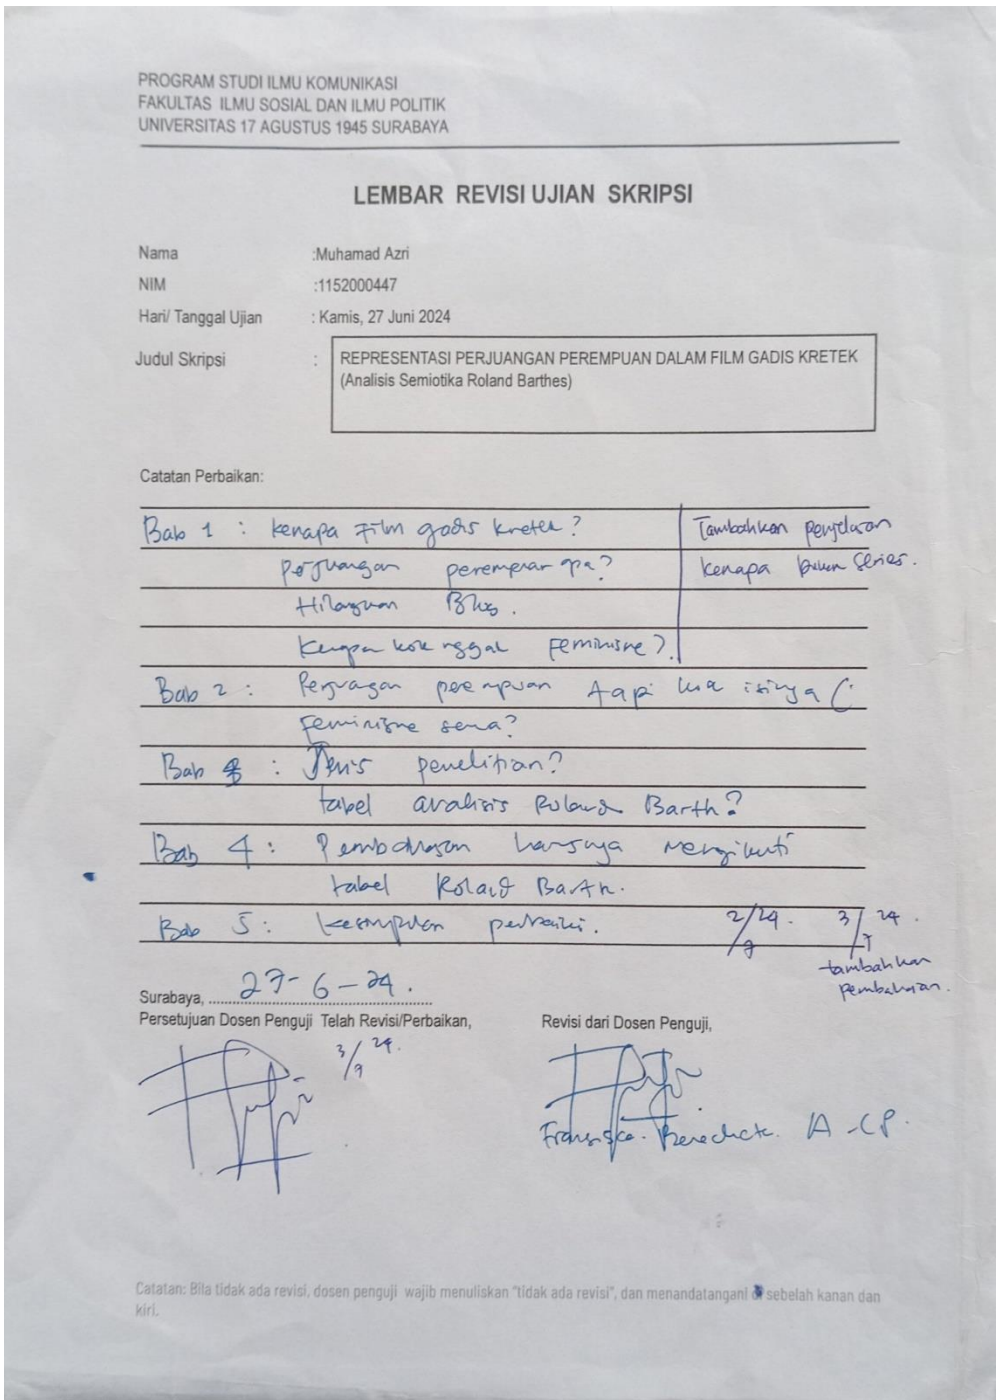 PROGRAM STUDI ILMU KOMUNIKASI
FAKULTAS ILMU SOSIAL DAN ILMU POLITIK
UNIVERSITAS 17 AGUSTUS 1945 SURABAYA
LEMBAR REVISI UJIAN SKRIPSI
Nama :Muhamad Azri
NIM :1152000447
Hari/ Tanggal Ujian : Kamis, 27 Juni 2024
Judul Skripsi : REPRESENTASI PERJUANGAN PEREMPUAN DALAM FILM GADIS KRETEK
(Analisis Semiotika Roland Barthes)
Catatan Perbaikan:
Bab 1 : kenapa Film gadis kretek?
perjuangan perempuan apa?
Hilangkan
Kenapa kok nggak Feminisme?
Tambahkan penjelasan
kenapa bukan series.
Bab 2 : Perjuangan perempuan tapi isinya
Feminisme semua?
Bab 3 : Jenis penelitian?
tabel analisis Roland Barth?
Bab 4 : Pembahasan harusnya mengikuti
tabel Roland Barth.
Bab 5 : kesimpulan perbaiki.
2/7 24. 3/7 24.
tambahkan
pembahasan.
Surabaya, 27-6-24.
Persetujuan Dosen Penguji Telah Revisi/Perbaikan,
3/7 24.
Revisi dari Dosen Penguji,
Fransiska. Benedicta. A-CP.
Catatan: Bila tidak ada revisi, dosen penguji wajib menuliskan "tidak ada revisi", dan menandatangani di sebelah kanan dan
kiri.